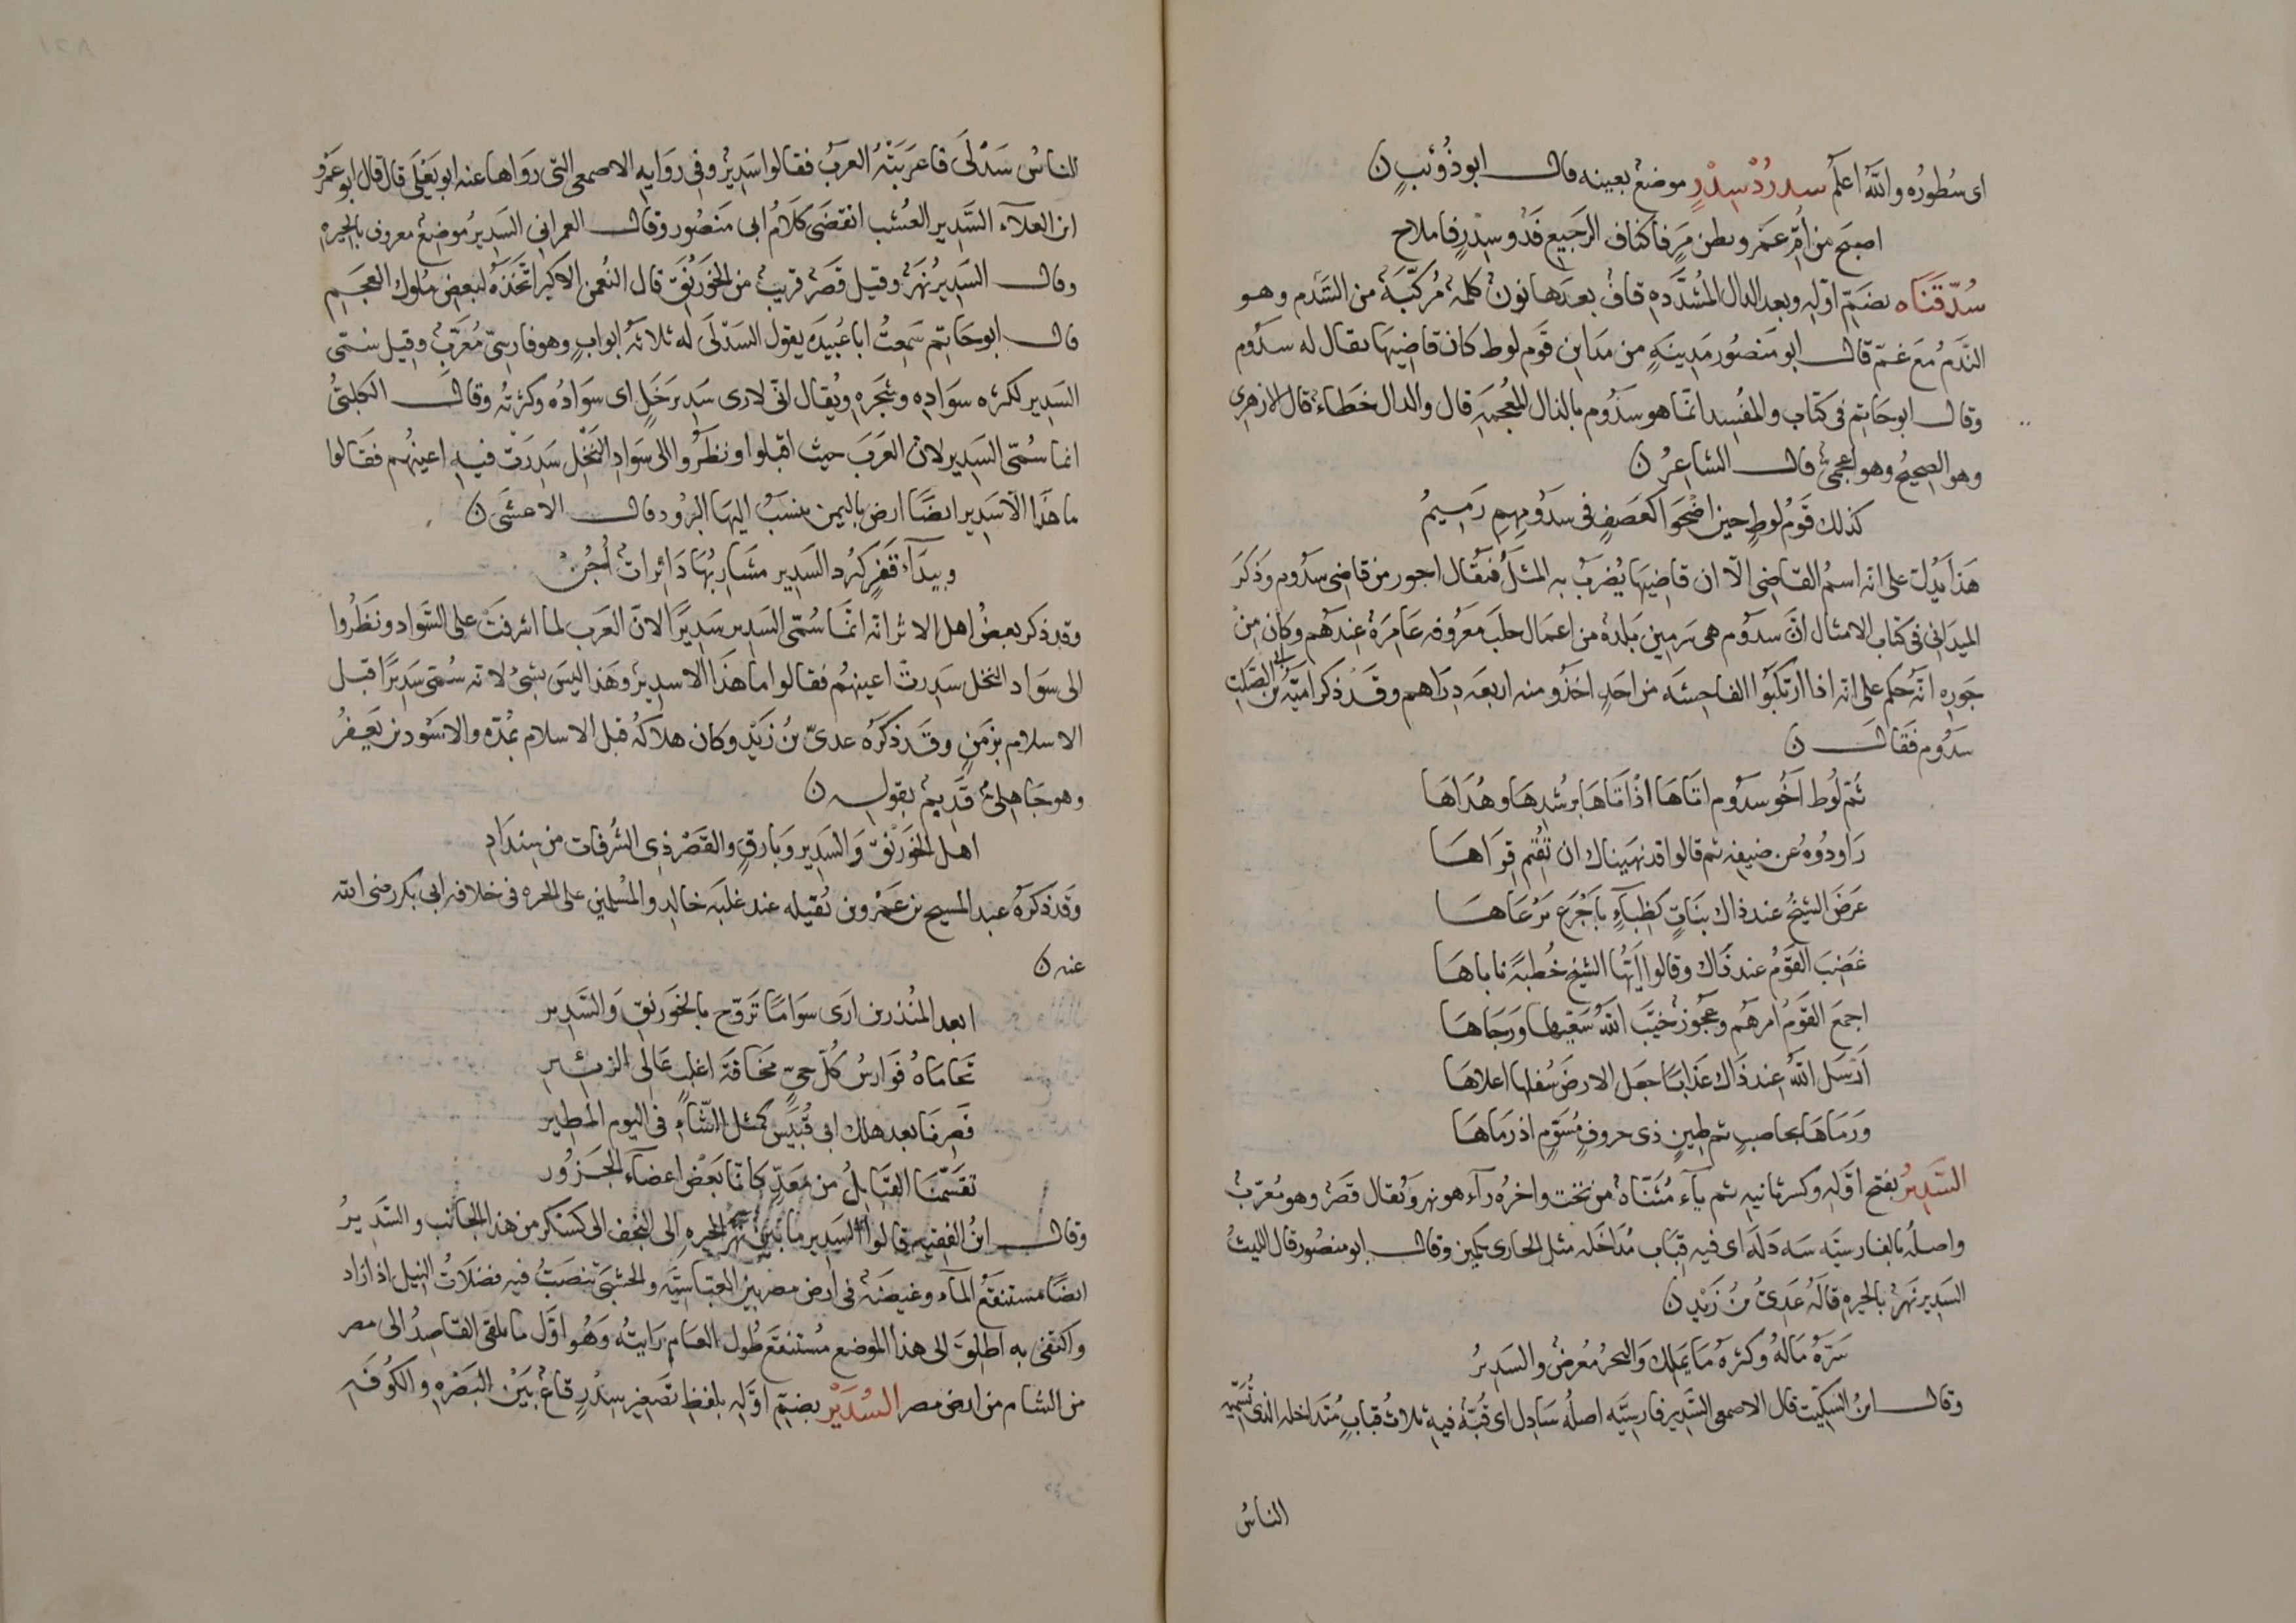 اى سُطورُه والله اعلم سدرُدْ سِدْرٍ موضع بعينه قال ابو ذُؤيبٍ ن
اصبح من أمّ عَمرٍو بطن مَرٍ فاكناف الرجيع فذو سِدْرٍ فاملاح
سُدّقَنَاه بضمّ اوّله وبعد الدال المُشدّده قاف بعدها نون كلمة مُركّبَة من السَّدَم وهو
النَّدَمُ مَعَ غمّ قال ابو منصُور مَدِينَهٍ من مَدَاين قَوم لوط كان قاضيها يقال له سَدُوم
وقال ابو حَاتِم فى كتاب والمفُسِد انّما هو سذُوم بالذال المعجمهَ قال والدال خَطاء قال الازهرى
وهو الصحيحُ وهو اعجمىّ قال الشاعِرُ ن
كذلك قَومُ لوطٍ حين اضْحَوا كعَصَفٍ فى سدَومِهِمِ رَمِيمُ
هَذا يَدُلّ على انه اسمُ القاضِى الّا ان قاضِيَها يُضرَبُ به المثَلُ فيقَال اجور من قاضِى سدُوم وذكَرَ
الميدَانِى فى كتاب الامثال انّ سدُوم هى سَرمِين بَلدة من اعمَال حلبَ معَرُوفه عَامِرَة عندَهم وكان مِنْ
جَورِه انّهُ حكم على انه اذا ارتكبُوا الفاحِشَه من احَدٍ اخذُو منه اربعَه دِرَاهم وقَد ذكر اميّة بن ابى الصَّلتِ
سَدُوم فقال ن
ثُمّ لُوط أخُو سدُوم اتَاهَا اذ اتَاهَا برُشدِهَا وهُدَاهَا
رَاودُوهُ عن ضيفِه ثم قالوا قد نهَيناك ان تُقيم قِرَاهَا
عَرضَ الشيخُ عند ذاك بنَاتٍ كظِباءٍ بأجْرَعٍ مَرْعَاهَا
غَضِبَ القَومُ عند ذاك وقالوا ايّها الشيخ خُطبَةً ناباهَا
اجمعَ القَومُ امرهم وعجُوزٌ خيّبَ اللهُ سَعْيَها ورَجَاهَا
أرْسَل اللهُ عند ذَاك عَذابًا جعَل الارضَ سُفلها اعلاهَا
ورَماهَا بحاصبٍ ثم طِينٍ ذى حروفٍ مُسَوّمٍ اذ رَماهَا
السَّدِيرُ بفتح اوّلهِ وكسر ثانيه ثم ياء مُثنّاة من تحت واخرُه رآء هو نهر ويُقال قصر وهو مُعرّبُ
واصلُه بالفارسيّه سه دَلَه اى فيه قبَاب مُدَاخَله مثل الحارى بكمين وقال ابو منصُور قال الليثُ
السَدِير نَهرٌ بالحيره قالَهُ عَدىُّ بنُ زَيْدٍ ن
سَرّهُ مَالهُ وكثرهُ مَا يَملك وَالبحرُ مُعْرضٌ والسَدِيرُ
وقال ابنُ السِّكّيت قال الاصمعى السَّدِير فارسيَّه اصلُه سَادِل اى قُبّة فيهِ ثلاثُ قبابٍ مُتَداخله الذى تُسَمِّيه
الناسُ
الناسُ سَدْلَى فاعربَتْهُ العربُ فقالوا سَدِيرٌ وفى روَايه الاصمعى التى رَوَاها عنه ابو يَعْلَى قال قال ابو عَمْرو
ابن العلآء السَّدِير العُشب انقَضَى كلَامُ ابى مَنصُور وقال العمرانى السَدِيرُ مُوضِع معروف بالحِيره
وقال السَدِيرُ نَهَرٌ وقيل قَصَر قريب من الخَورْنَق قال النُعمن الاكبر اتّخَذَه لبعض مُلوك العجَم
قال ابو حَاتِم سَمِعتُ ابا عُبَيدَه يقول السَدْلَى له ثلاثه ابوابٍ وهو فارسىّ مُعَرَّبٌ وقيل سُمّى
السَدِير لكثره سوَادِه وشجَرِه ويُقال انّى لارى سَدِيرَ نَخلٍ اى سوَادُه وكثرتُه وقال الكلبىُّ
انما سُمّى السَدِير لان العَرَبَ حيث اقبلوا ونظرُوا الى سوَادِ النَخْل سَدِرَتْ فيه اعينُهم فقَالوا
ما هَذَا الّا سَدِير ايضًا ارض باليمن ينسَبُ اليهَا البرُود قال الاعشَى ن
وبيدآء قفرٍ كبُرد السَدِير مشَاربُهَا دَاثرات أُجُنْ
وقد ذكر بعضُ اهل الاثر انه انمّا سُمّى السَدِير سَدِيرًا لانّ العرب لما اشرفتْ على السَواد ونظُروا
الى سوَاد النخل سَدِرتْ اعينهم فقالوا ما هَذَا الا سدِيرٌ وهَذا ليسَ بشئ لانه سُمّى سَدِيرًا قبل
الاسلام بزَمنٍ وقَد ذكَرَه عدىّ بنُ زَيْدٍ وكان هلاكُه قبل الاسلام بمُدّه والاسْود بن يَعفُرُ
وهو جَاهِلىّ قَدِيم بقوله ن
اهل الخَوَرنَقِ وَالسَدِير وبَارقٍ والقَصْر ذِى الشُرفات من سِندَادِ
وقَد ذكَرَهُ عبد المسيح بن عَمْرو بن بُقيله عند غلبَه خالِد والمُسلمين على الحيره فى خلافه ابى بكر رضى الله
عنه ن
ابعد المُنذرين ارَى سَوَامًا تَرَوّح بالخوَرنقِ وَالسَدِير
تحامَاهُ فوَارسُ كُلّ حىّ مخَافَةَ اغلبٍ عَالى الزئير
فصِرنَا بعد هلك ابى قُبَيْس كمثل الشّاءِ فى اليوم المطير
تقسّمُنَا القبَايلُ من مَعدّ كانّا بعَضُ اعضآء الجَزُور
وقال ابنُ الفقيه قالوا السَدِير ما بين نهر الحِيرهِ الى النجف الى كسكر من هذا الجانب والسَّدِيرُ
ايضًا مستنقعُ المآء وغيضَة فى ارض مصر بين العبَّاسيَّه والخشبىّ تنصَبُّ فيه فضلَاتُ النِيل اذا زاد
واكتفى به اطلوَ الى هذا الموضع مُستنقع طُول العَام رَايتُه وَهُو اوّل ما يلقى القَاصِدُ الى مصر
من الشام من ارض مصر السُدَيْر بضمّ اوّله بلفظ تصَغِير سِدْرٍ قاعٌ بَيْنَ البَصْرهِ والكُوفَه